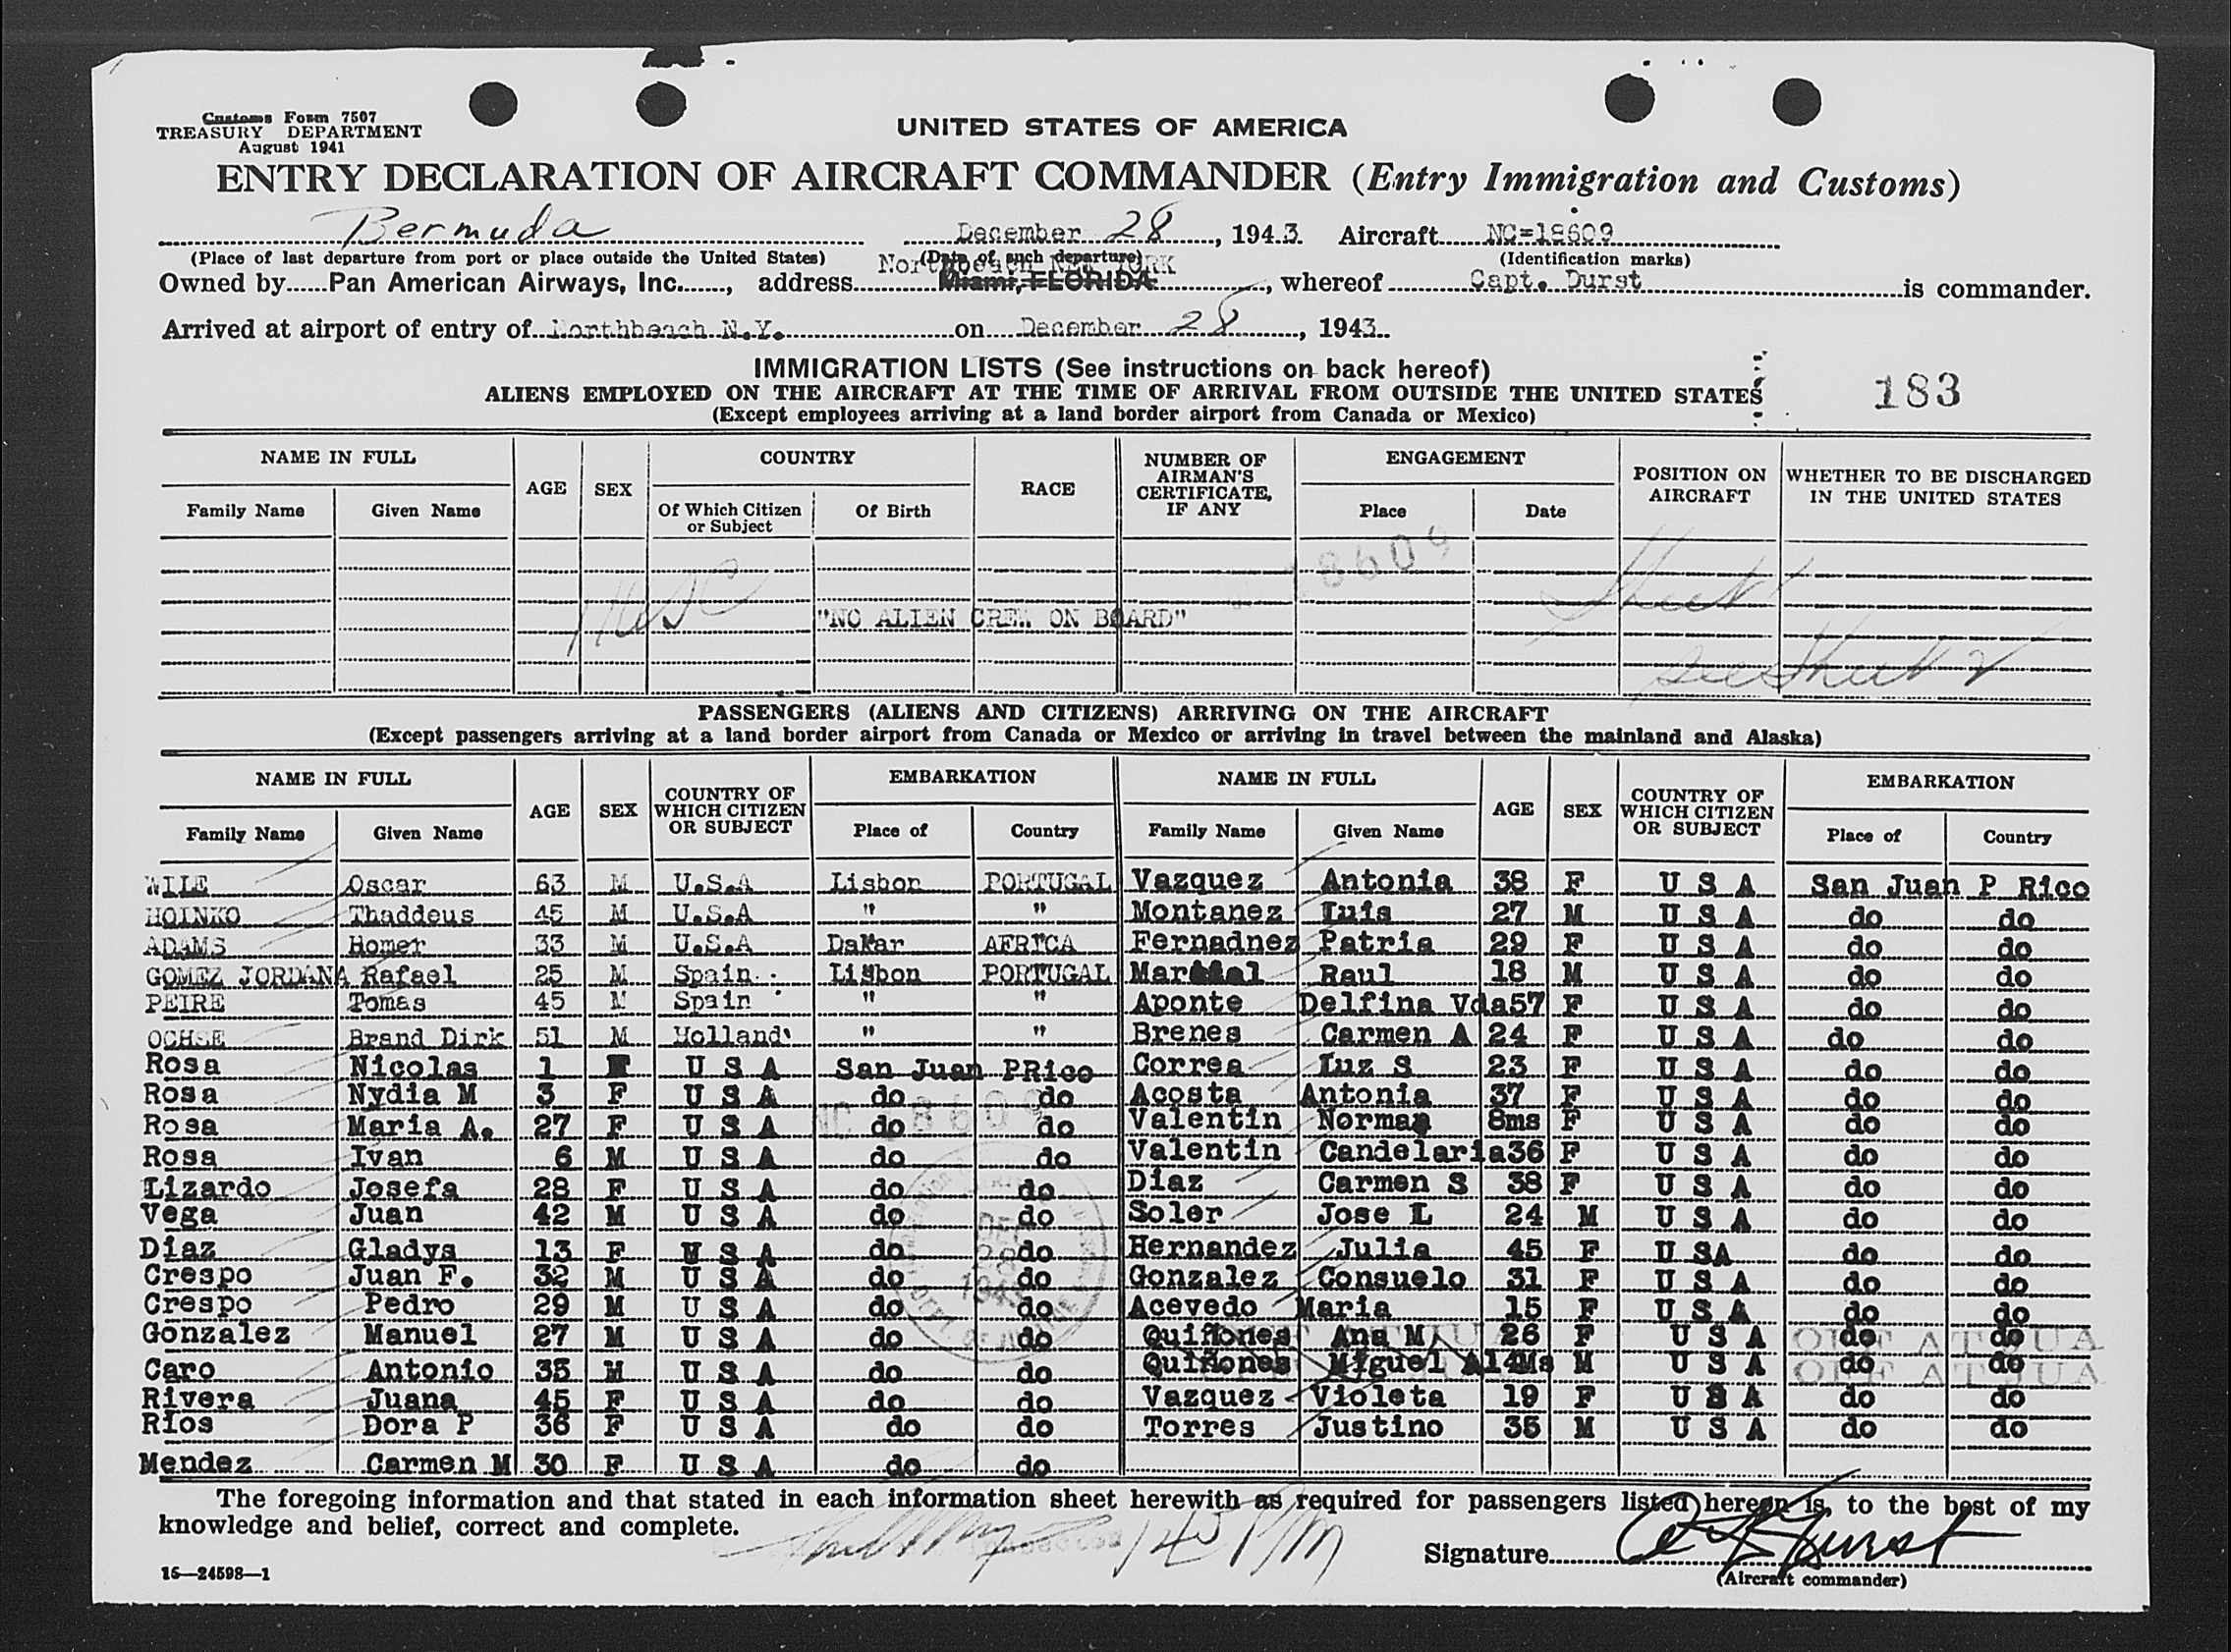 Customs Form 7507
TREASURY DEPARTMENT
August 1941
UNITED STATES OF AMERICA
ENTRY DECLARATION OF AIRCRAFT COMMANDER (Entry Immigration and Customs)
Bermuda December 28, 1943. Aircraft NC=18609
(Place of last departure from port or place outside the United States) (Date of such departure) (Identification marks)
Northbeach NEW YORK
Owned by Pan American Airways, Inc., address Miami, FLORIDA, whereof Capt. Durst is commander.
Arrived at airport of entry of Northbeach N.Y. on December 28, 1943.
IMMIGRATION LISTS (See instructions on back hereof)
ALIENS EMPLOYED ON THE AIRCRAFT AT THE TIME OF ARRIVAL FROM OUTSIDE THE UNITED STATES
183
(Except employees arriving at a land border airport from Canada or Mexico)
NAME IN FULL AGE SEX COUNTRY RACE NUMBER OF AIRMAN'S CERTIFICATE, IF ANY ENGAGEMENT POSITION ON AIRCRAFT WHETHER TO BE DISCHARGED IN THE UNITED STATES
Family Name Given Name Of Which Citizen or Subject Of Birth Place Date
18609
"NO ALIEN CREW ON BOARD"
Sheet 1
See Sheet 2
PASSENGERS (ALIENS AND CITIZENS) ARRIVING ON THE AIRCRAFT
(Except passengers arriving at a land border airport from Canada or Mexico or arriving in travel between the mainland and Alaska)
NAME IN FULL AGE SEX COUNTRY OF WHICH CITIZEN OR SUBJECT EMBARKATION NAME IN FULL AGE SEX COUNTRY OF WHICH CITIZEN OR SUBJECT EMBARKATION
Family Name Given Name Place of Country Family Name Given Name Place of Country
WILE Oscar 63 M U.S.A Lisbon PORTUGAL Vazquez Antonia 38 F U S A San Juan P Rico
HOINKO Thaddeus 45 M U.S.A " " Montanez Luis 27 M U S A do do
ADAMS Homer 33 M U.S.A Dakar AFRICA Fernadnez Patria 29 F U S A do do
GOMEZ JORDANA Rafael 25 M Spain Lisbon PORTUGAL Raul 18 M U S A do do
PEIRE Tomas 45 M Spain " " Aponte Delfina Vda 57 F U S A do do
OCHSE Brand Dirk 51 M Holland " " Brenes Carmen A 24 F U S A do do
Rosa Nicolas 1 U S A San Juan PRico Correa Luz S 23 F U S A do do
Rosa Nydia M 3 F U S A do do Acosta Antonia 37 F U S A do do
Rosa Maria A. 27 F U S A do do Valentin Norma 8ms F U S A do do
Rosa Ivan 6 M U S A do do Valentin Candelaria 36 F U S A do do
Lizardo Josefa 28 F U S A do do Diaz Carmen S 38 F U S A do do
Vega Juan 42 M U S A do do Soler Jose L 24 M U S A do do
Diaz Gladys 13 F U S A do do Hernandez Julia 45 F U SA do do
Crespo Juan F. 32 M U S A do do Gonzalez Consuelo 31 F U S A do do
Crespo Pedro 29 M U S A do do Acevedo Maria 15 F U S A do do
Gonzalez Manuel 27 M U S A do do Quiñones Ana M 26 F U S A do do
Caro Antonio 35 M U S A do do Quiñones Miguel A 14Ms M U S A do do
Rivera Juana 45 F U S A do do Vazquez Violeta 19 F U S A do do
Rios Dora P 36 F U S A do do Torres Justino 35 M U S A do do
Mendez Carmen M 30 F U S A do do
NC 18609
DEC 28 1943
OFF AT JUA
OFF AT JUA
The foregoing information and that stated in each information sheet herewith as required for passengers listed hereon is, to the best of my
knowledge and belief, correct and complete.
145 PM
Signature
(Aircraft commander)
16—24598—1